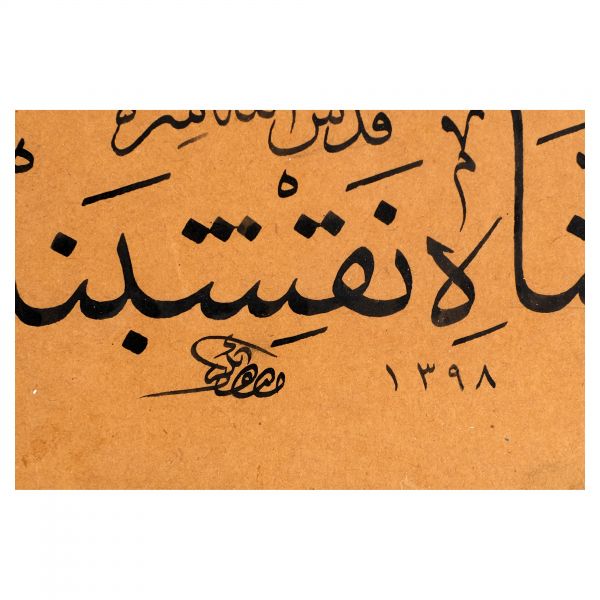 قدس الله سره
اهِ نَقْشِبَن
١٣٩٨